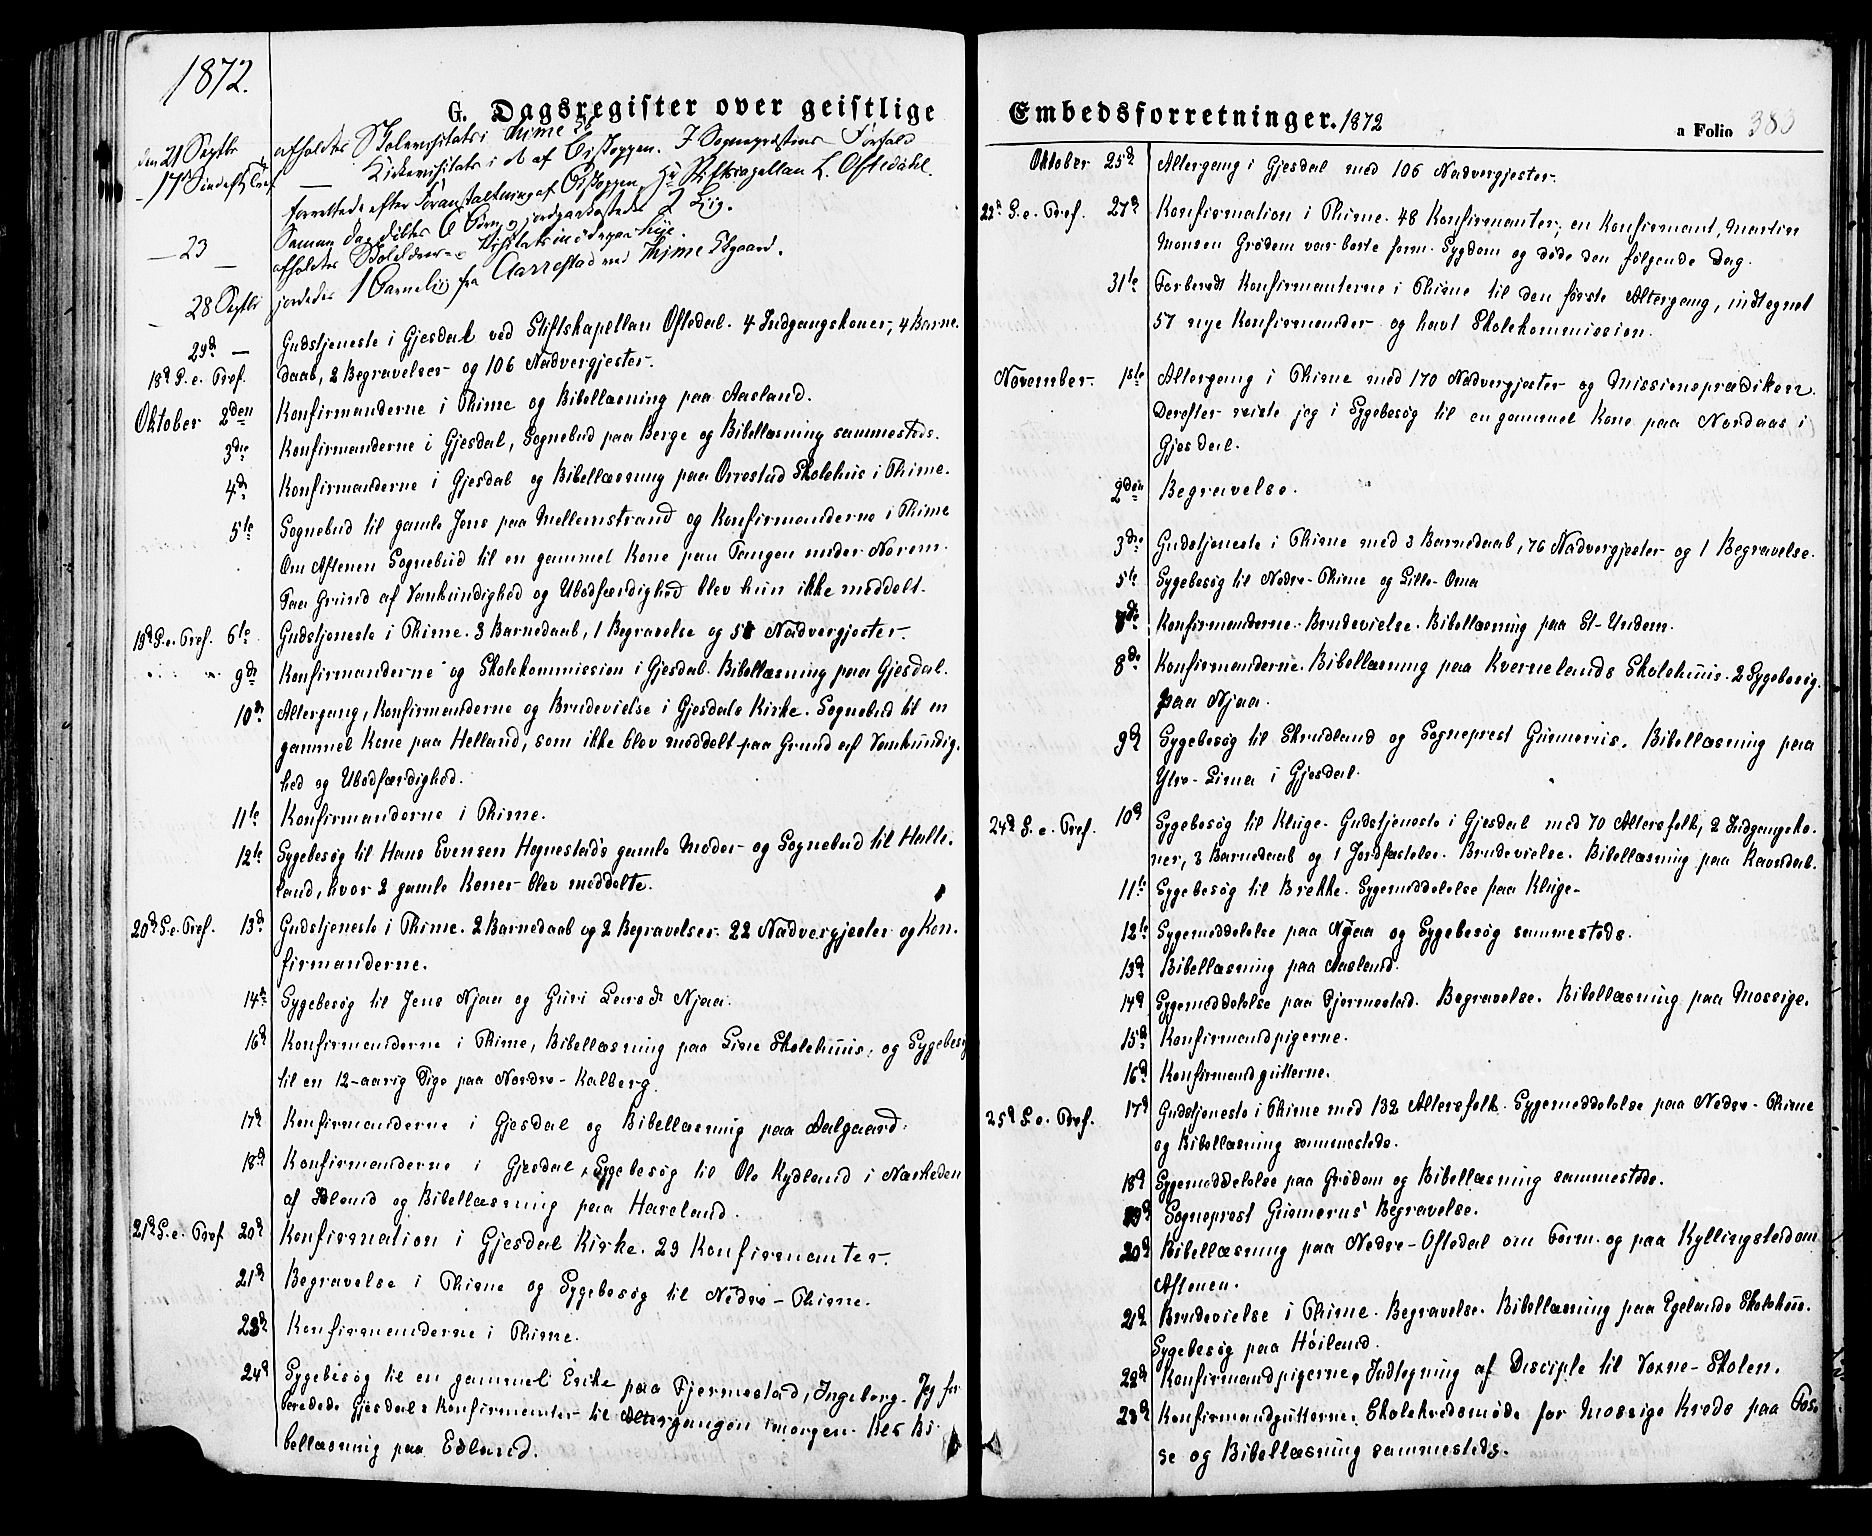 1872.
G. Dagsregister over geistlige
den 21 Septbr afholdtes Skolevisitats i Thime
17 Sønd. eft. Tref. — Kirkevisitats i do af Biskoppen. I Sognepræstens Forfald
forrettede efter Foranstaltning af Biskoppen Hr Stiftskapellan L. Oftedahl.
Samme Dag døbtes 6 Børn og jordpaakastedes 2 Lig.
— 23 — afholdtes Skole
28 Septbr jordedes 1 Barnelig fra Aarrestad ved Thime Kirkegaard.
29d — Gudstjeneste i Gjesdal ved Stiftskapellan Oftedal. 4 Indgangskoner, 4 Barne-
18d S. e. Tref. daab, 2 Begravelser og 106 Nadvergjester.
Oktober 2den Konfirmanderne i Thime og Bibellæsning paa Aasland.
3die Konfirmanderne i Gjesdal, Sognebud paa Berge og Bibellæsning sammesteds.
4de Konfirmanderne i Gjesdal og Bibellæsning paa Orrestad Skolehus i Thime.
5te Sognebud til gamle Jens paa Mellemstrand og Konfirmanderne i Thime
Om Aftenen Sognebud til en gammel Kone paa Tangen under Norem.
Paa Grund af Vankundighed og Ubodfærdighed blev hun ikke meddelt.
19d S. e. Tref. 6te Gudstjeneste i Thime. 3 Barnedaab, 1 Begravelse og 51 Nadvergjester.
9de Konfirmanderne og Skolekommission i Gjesdal. Bibellæsning paa Gjesdal.
10de Altergang, Konfirmanderne og Brudevielse i Gjesdals Kirke. Sognebud til en
gammel Kone paa Helland, som ikke blev meddelt paa Grund af Vankundig-
hed og Ubodfærdighed.
11te Konfirmanderne i Thime.
12te Sygebesøg til Hans Evensen Hognestads gamle Moder og Sognebud til Helle-
land, hvor 2 gamle Koner blev meddelte.
20d S. e. Tref. 13de Gudstjeneste i Thime. 2 Barnedaab og 2 Begravelser. 22 Nadvergjester og Kon-
firmanderne.
14de Sygebesøg til Jens Njaa og Guri Larsdr Njaa.
16d Konfirmanderne i Thime, Bibellæsning paa Line Skolehuus, og Sygebesøg
til en 12-aarig Pige paa Nordre-Kalberg.
17d Konfirmanderne i Gjesdal og Bibellæsning paa Aalgaard.
18d Konfirmanderne i Gjesdal, Sygebesøg til Ole Kydland i Nærheden
af Edland og Bibellæsning paa Haveland.
21d S. e. Tref. 20d Konfirmation i Gjesdal Kirke. 29 Konfirmanter.
21d Begravelse i Thime og Sygebesøg til Nedre-Thime.
23d Konfirmanderne i Thime.
24d Sygebesøg til en gammel Enke paa Fjermestad, Ingeborg. Jeg for-
beredede Gjesdals Konfirmanter til Altergangen imorgen. Bi-
bellæsning paa Edland.
Embedsforretninger. 1872
a Folio 383
Oktober 25d Altergang i Gjesdal med 106 Nadvergjester.
22d S. e. Tref. 27d Konfirmation i Thime. 48 Konfirmanter; en Konfirmant, Martin
Monsen Grødem var borte form. Sygdom og døde den følgende Dag.
31te Forberedt Konfirmanterne i Thime til den første Altergang, indtegnet
57 nye Konfirmander og havt Skolekommission.
November. 1ste Altergang i Thime med 170 Nadvergjester og Missionsprædiken.
Derefter reiste jeg i Sygebesøg til en gammel Kone paa Nordaas i
Gjesdal.
2den Begravelse.
3die Gudstjeneste i Thime med 3 Barnedaab, 76 Nadvergjester og 1 Begravelse.
5te Sygebesøg til Nedre-Thime og Lille-Oma
7de Konfirmanderne. Brudevielse. Bibellæsning paa St-Undem.
8de Konfirmanderne. Bibellæsning paa Kvernelands Skolehuus. 2 Sygebesøg
paa Njaa.
9d Sygebesøg til Skrudland og Sogneprest Gunnerius. Bibellæsning paa
Ytre-Lima i Gjesdal.
24d S. e. Tref. 10d Sygebesøg til Kluge. Gudstjeneste i Gjesdal med 70 Altersfolk, 2 Indgangsko-
ner, 3 Barnedaab og 1 Jordfæstelse. Brudevielse. Bibellæsning paa Ravndal.
11te Sygebesøg til Brekke. Sygemeddelelse paa Kluge.
12te Sygemeddelelse paa Njaa og Sygebesøg sammesteds.
13d Bibellæsning paa Aasland.
14d Sygemeddelelse paa Fjermestad. Begravelse. Bibellæsning paa Mossige.
15d Konfirmandpigerne.
16d Konfirmandgutterne.
25d S. e. Tref. 17d Gudstjeneste i Thime med 132 Altersfolk. Sygemeddelelse paa Nedre-Thime
og Bibellæsning sammesteds.
18d Sygemeddelelse paa Grødem og Bibellæsning sammesteds.
19d Sogneprest Gunnerus' Begravelse.
20d Bibellæsning paa Nedre-Oftedal om Form. og paa Kyllingstad om
Aftenen.
21d Brudevielse i Thime. Begravelse. Bibellæsning paa Egelands Skolehus.
Sygebesøg paa Høiland.
22d Konfirmandpigerne, Indtegning af Disciple til Voxne-Skolen.
23d Konfirmandgutterne. Skolekredsmøde for Mossige Kreds paa Fos-
se og Bibellæsning sammesteds.